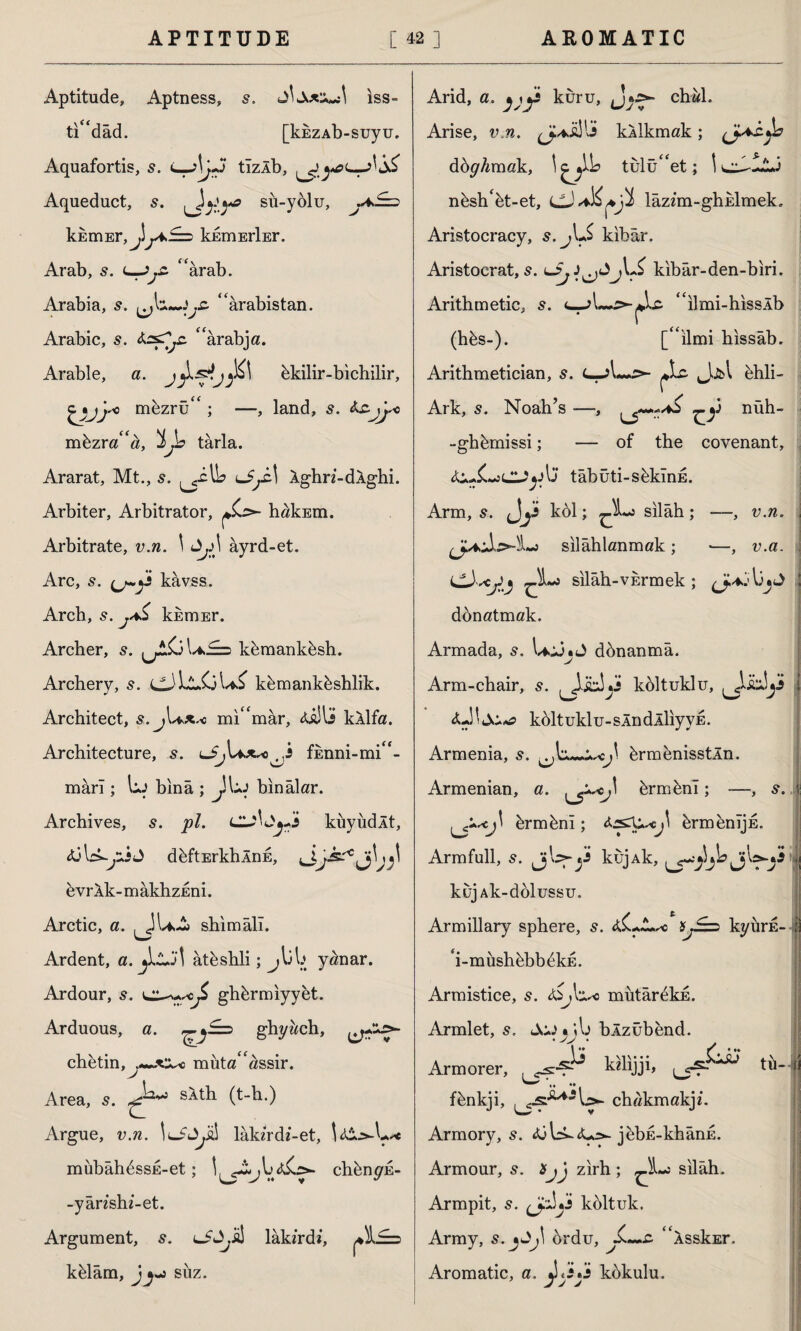 APTITUDE [ 42 ] AROMATIC
Aptitude, Aptness, s. استعداد iss-
ti‘‘dād. [kèzAb-suyu.
Aquafortis, s. تيزاب tīzĀb, كذاب صويى
Aqueduct, s. صو يولى sù-yòlu, كمر
kèmEr, كمرلر kèmErlEr.
Arab, s. عرب ‘‘àrab.
Arabia, s. عربستان ‘‘àrabistan.
Arabic, s. عربجه ‘‘àrabja.
Arable, a. اكيلير بيچيلير èkilir-bìchilir,
مزروع mèzrū‘‘ ; —, land, s. مزرعه
mèzra‘‘à, طرلا tàrla.
Ararat, Mt., s. اغرى طاغى Àghri-dÀghi.
Arbiter, Arbitrator, حكم hàkEm.
Arbitrate, v.n. ايرد ا àyrd-et.
Arc, s. قوس kàvss.
Arch, s. كمر kèmEr.
Archer, s. كمانكش kèmankèsh.
Archery, s. كمانكشلك kèmankèshlik.
Architect, s. معمار mi‘‘màr, قالفه kÀlfa.
Architecture, s. فن معمارى fÈnni-mi‘‘-
màrī ; بنا binā ; بنالر binālar.
Archives, s. pl. قيودات kùyùdĀt,
دفترخانه dèftErkhĀnE, اوراق مخزنى
èvrÀk-màkhzEni.
Arctic, a. شمالى shìmālī.
Ardent, a. آتشلى àtèshli ; يانار yànar.
Ardour, s. گرميت ghèrmìyyèt.
Arduous, a. كوچ ghyùch, چتين
chètin, متعسر mùta‘‘àssir.
Area, s. سطح sÀth (t-h.)
Argue, v.n. لقردى ا làkirdi-et, مباحثه ا
mùbāhéssE-et ; چكه ياريشى ا chèngE-
-yārishi-et.
Argument, s. لقردى làkirdi, كلام
kèlām, سوز sùz.
Arid, a. قورو kùru, چول chùl.
Arise, v.n. قالقمق kÀlkmak ; طوغمق
dòghmak, طلوع ا tùlū‘‘et ; نشئت ا
nèsh‘èt-et, لازم كلمك làzim-ghÈlmek.
Aristocracy, s. كبار kìbār.
Aristocrat, s. كباردن برى kìbār-den-bìri.
Arithmetic, s. علم حساب ‘‘ìlmi-hìssĀb
(hès-). [‘‘ìlmi hìssāb.
Arithmetician, s. اهل علم حساب èhli-
Ark, s. Noah’s —, نوح كميسى nūh-
-ghèmissi ; — of the covenant,
تابوت سكينه tābūti-sèkīnE.
Arm, s. قول kòl ; سلاح sìlāh ; —, v.n.
سلاحلنمق sìlāhlanmak ; —, v.a.
سلاح ويرمك sìlāh-vÈrmek ; دوناتمق
dònatmak.
Armada, s. دوننما dònanmā.
Arm-chair, s. قولتقلى kòltuklu, قولتقلى
صندليه kòltuklu-sÀndĀlìyyE.
Armenia, s. ارمنستان èrmènisstĀn.
Armenian, a. ارمنى èrmènī ; —, s.
ارمنى èrmènī ; ارمنيجه èrmènījE.
Armfull, s. قوجاق kùjAk, قوجاق طولوسى
kùjAk-dòlussu.
Armillary sphere, s. كره مشبكه kyùrE-
‘i-mùshèbbékE.
Armistice, s. متاركه mùtārékE.
Armlet, s. بازوبند bĀzūbènd.
Armorer, قليجى kìlijji, تفنكجى tù-
fènkji, چاقماقجى chàkmakji.
Armory, s. جبه خانه jèbE-khānE.
Armour, s. زره zìrh ; سلاح sìlāh.
Armpit, s. قولتق kòltuk.
Army, s. اردو òrdu, عسكر ‘‘ÀsskEr.
Aromatic, a. قوقولو kòkulu.